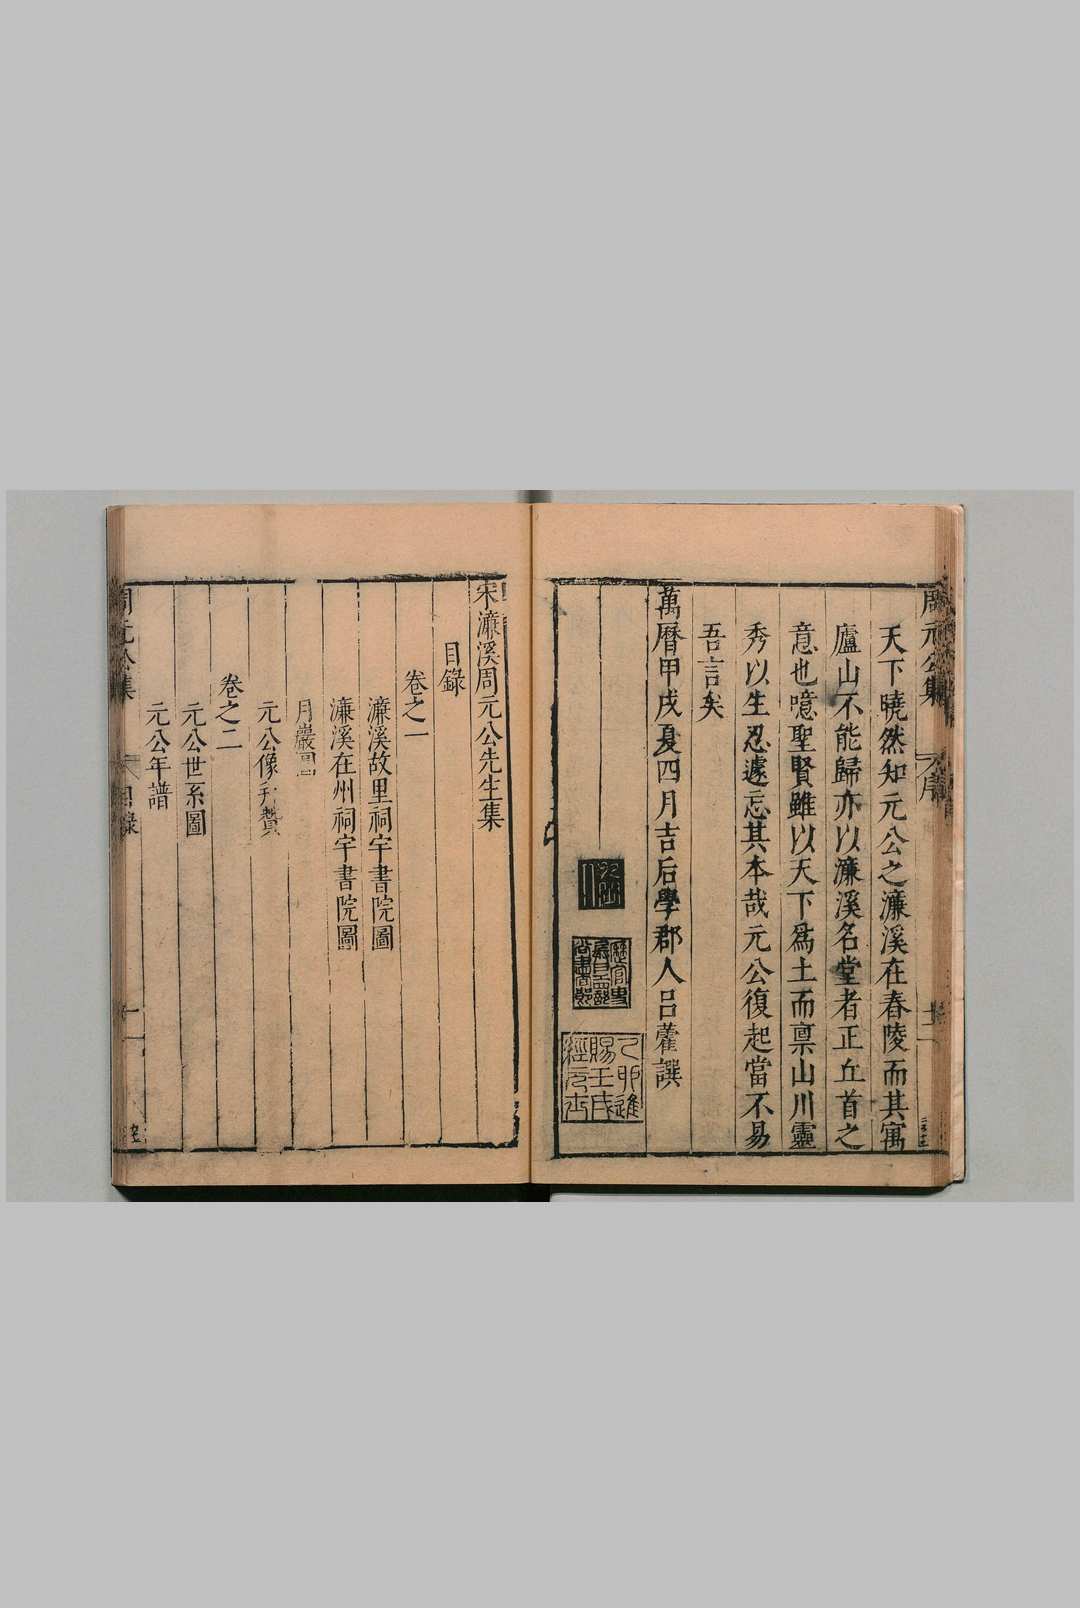 天下曉然知元公之濂溪在舂陵而其寓
廬山不能歸亦以濂溪名堂者正丘首之
意也噫聖賢雖以天下爲土而禀山川靈
秀以生忍遽忘其本哉元公復起當不易
吾言矣
萬曆甲戌夏四月吉后學郡人吕藿譔
宋濂溪周元公先生集
目錄
卷之一
濂溪故里祠宇書院圖
濂溪在州祠宇書院圖
月巖圖
元公像并贊
卷之二
元公世系圖
元公年譜
周元公集
目錄